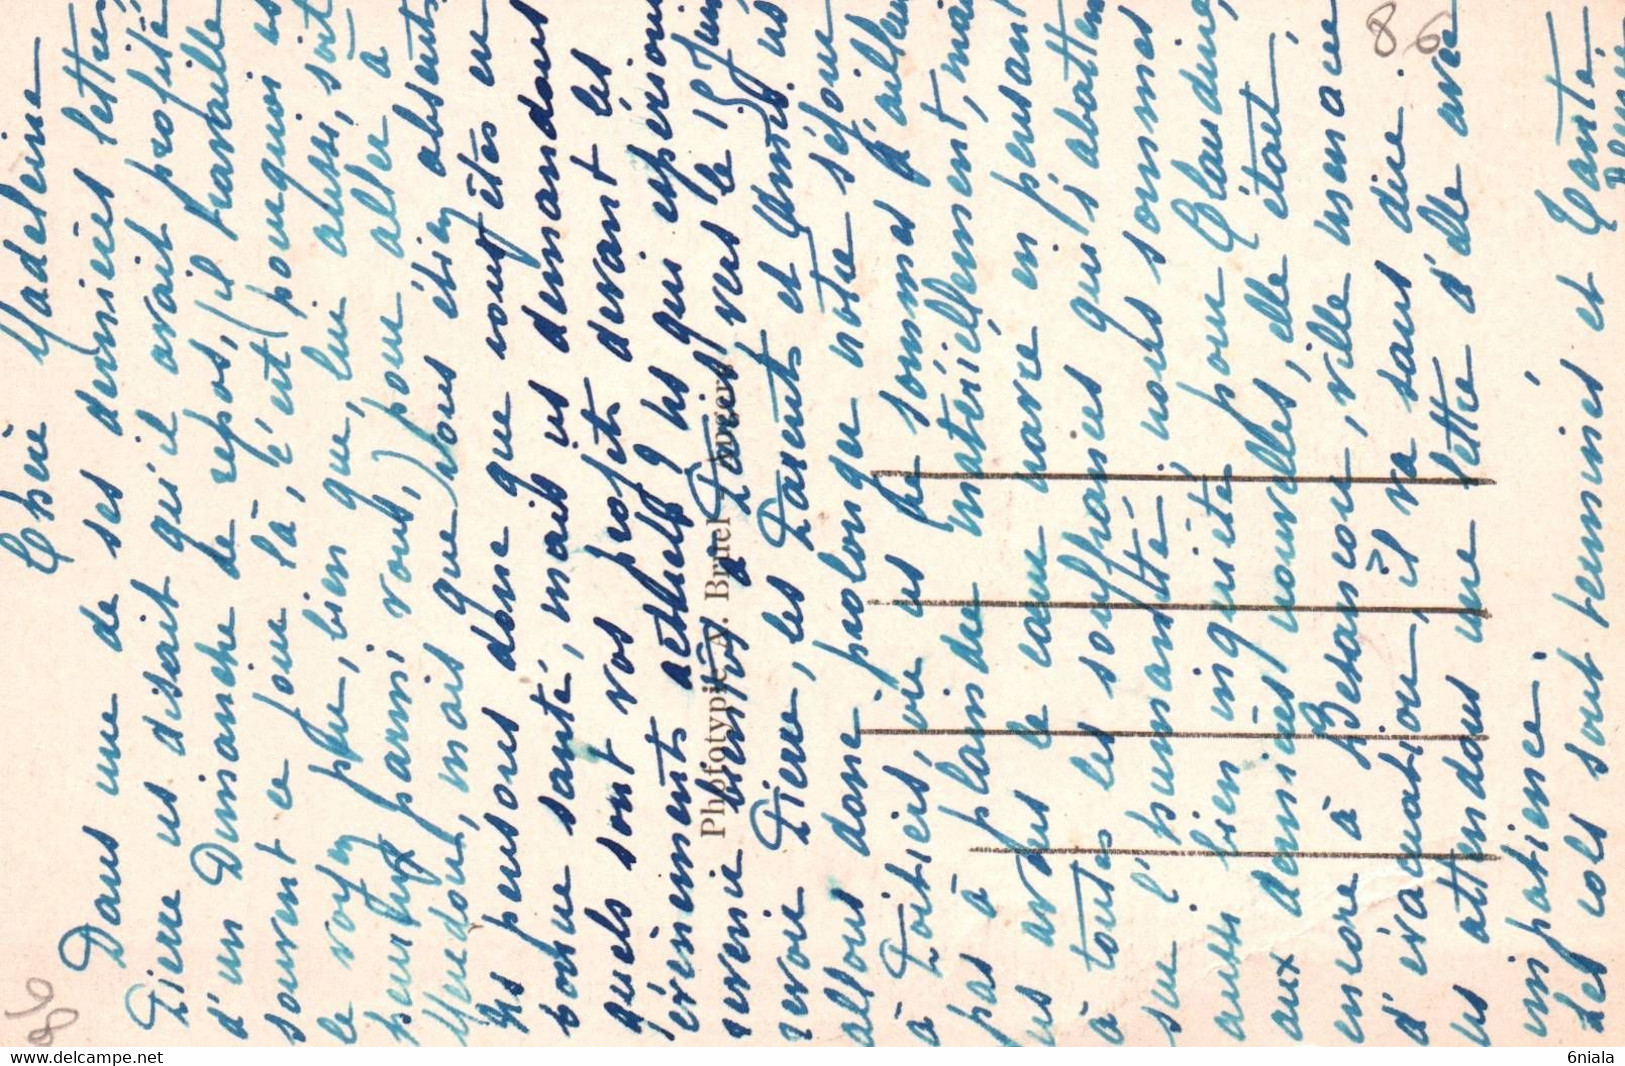 Chère Madeleine
Dans une de ses dernières lettres
Pierre ns disait qu'il avait profité
d'un Dimanche de repos, (il travaille
souvent ce jour là, c'est pourquoi es
le voyez peu, bien que, lui aussi, soit
heureux parmi vous,) pour aller à
Meudon, mais que vous étiez absents
Ns pensons donc que vous êtes en
bonne santé, mais ns demandons
quels sont vos projets devant les
événements actuels ? Ns qui espérions
revenir bientôt à Paris vers le 15 Juin
revoir Pierre, les Parents et amis. ns
allons donc prolonger notre séjour
à Poitiers, où ns ne sommes d'ailleurs
pas à plaindre matériellement, mais
ns avons le cœur navré en pensant
à toutes les souffrances qui s'abattent
sur l'humanité. nous sommes
aussi bien inquiète pour Claudine,
aux dernières nouvelles, elle était
encore à Besançon, ville menacée
d'évacuation, il va sans dire.
ns attendons une lettre d'elle avec
impatience.
Les cols sont terminés et Tante
86
86
Phototypie A. Bruel Angers
6niala